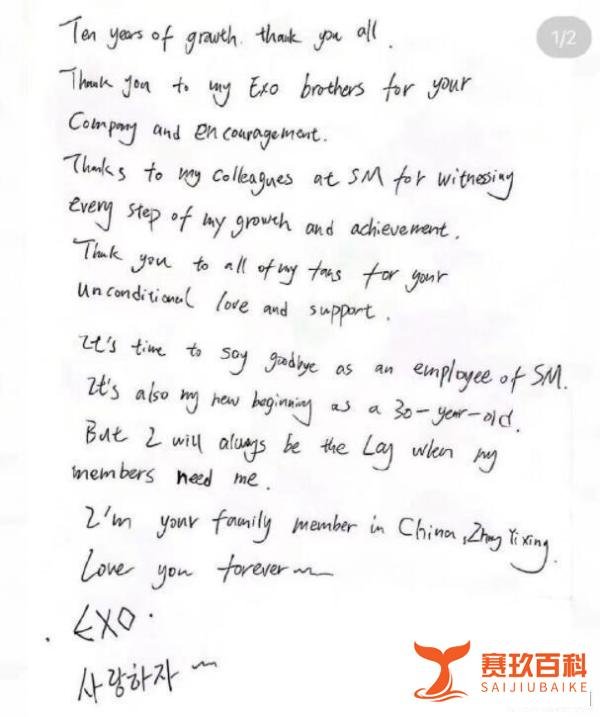 Ten years of growth. thank you all.
1/2
Thank you to my Exo brothers for your
Company and encouragement.
Thanks to my colleagues at SM for witnessing
every step of my growth and achievement.
Thank you to all of my fans for your
Unconditional love and support.
It's time to say goodbye as an employee of SM.
It's also my new beginning as a 30-year-old.
But I will always be the Lay when my
members need me.
I'm your family member in China, Zhang Yixing.
Love you forever~
EXO.
사랑하자~
赛玖百科
SAIJIUBAIKE